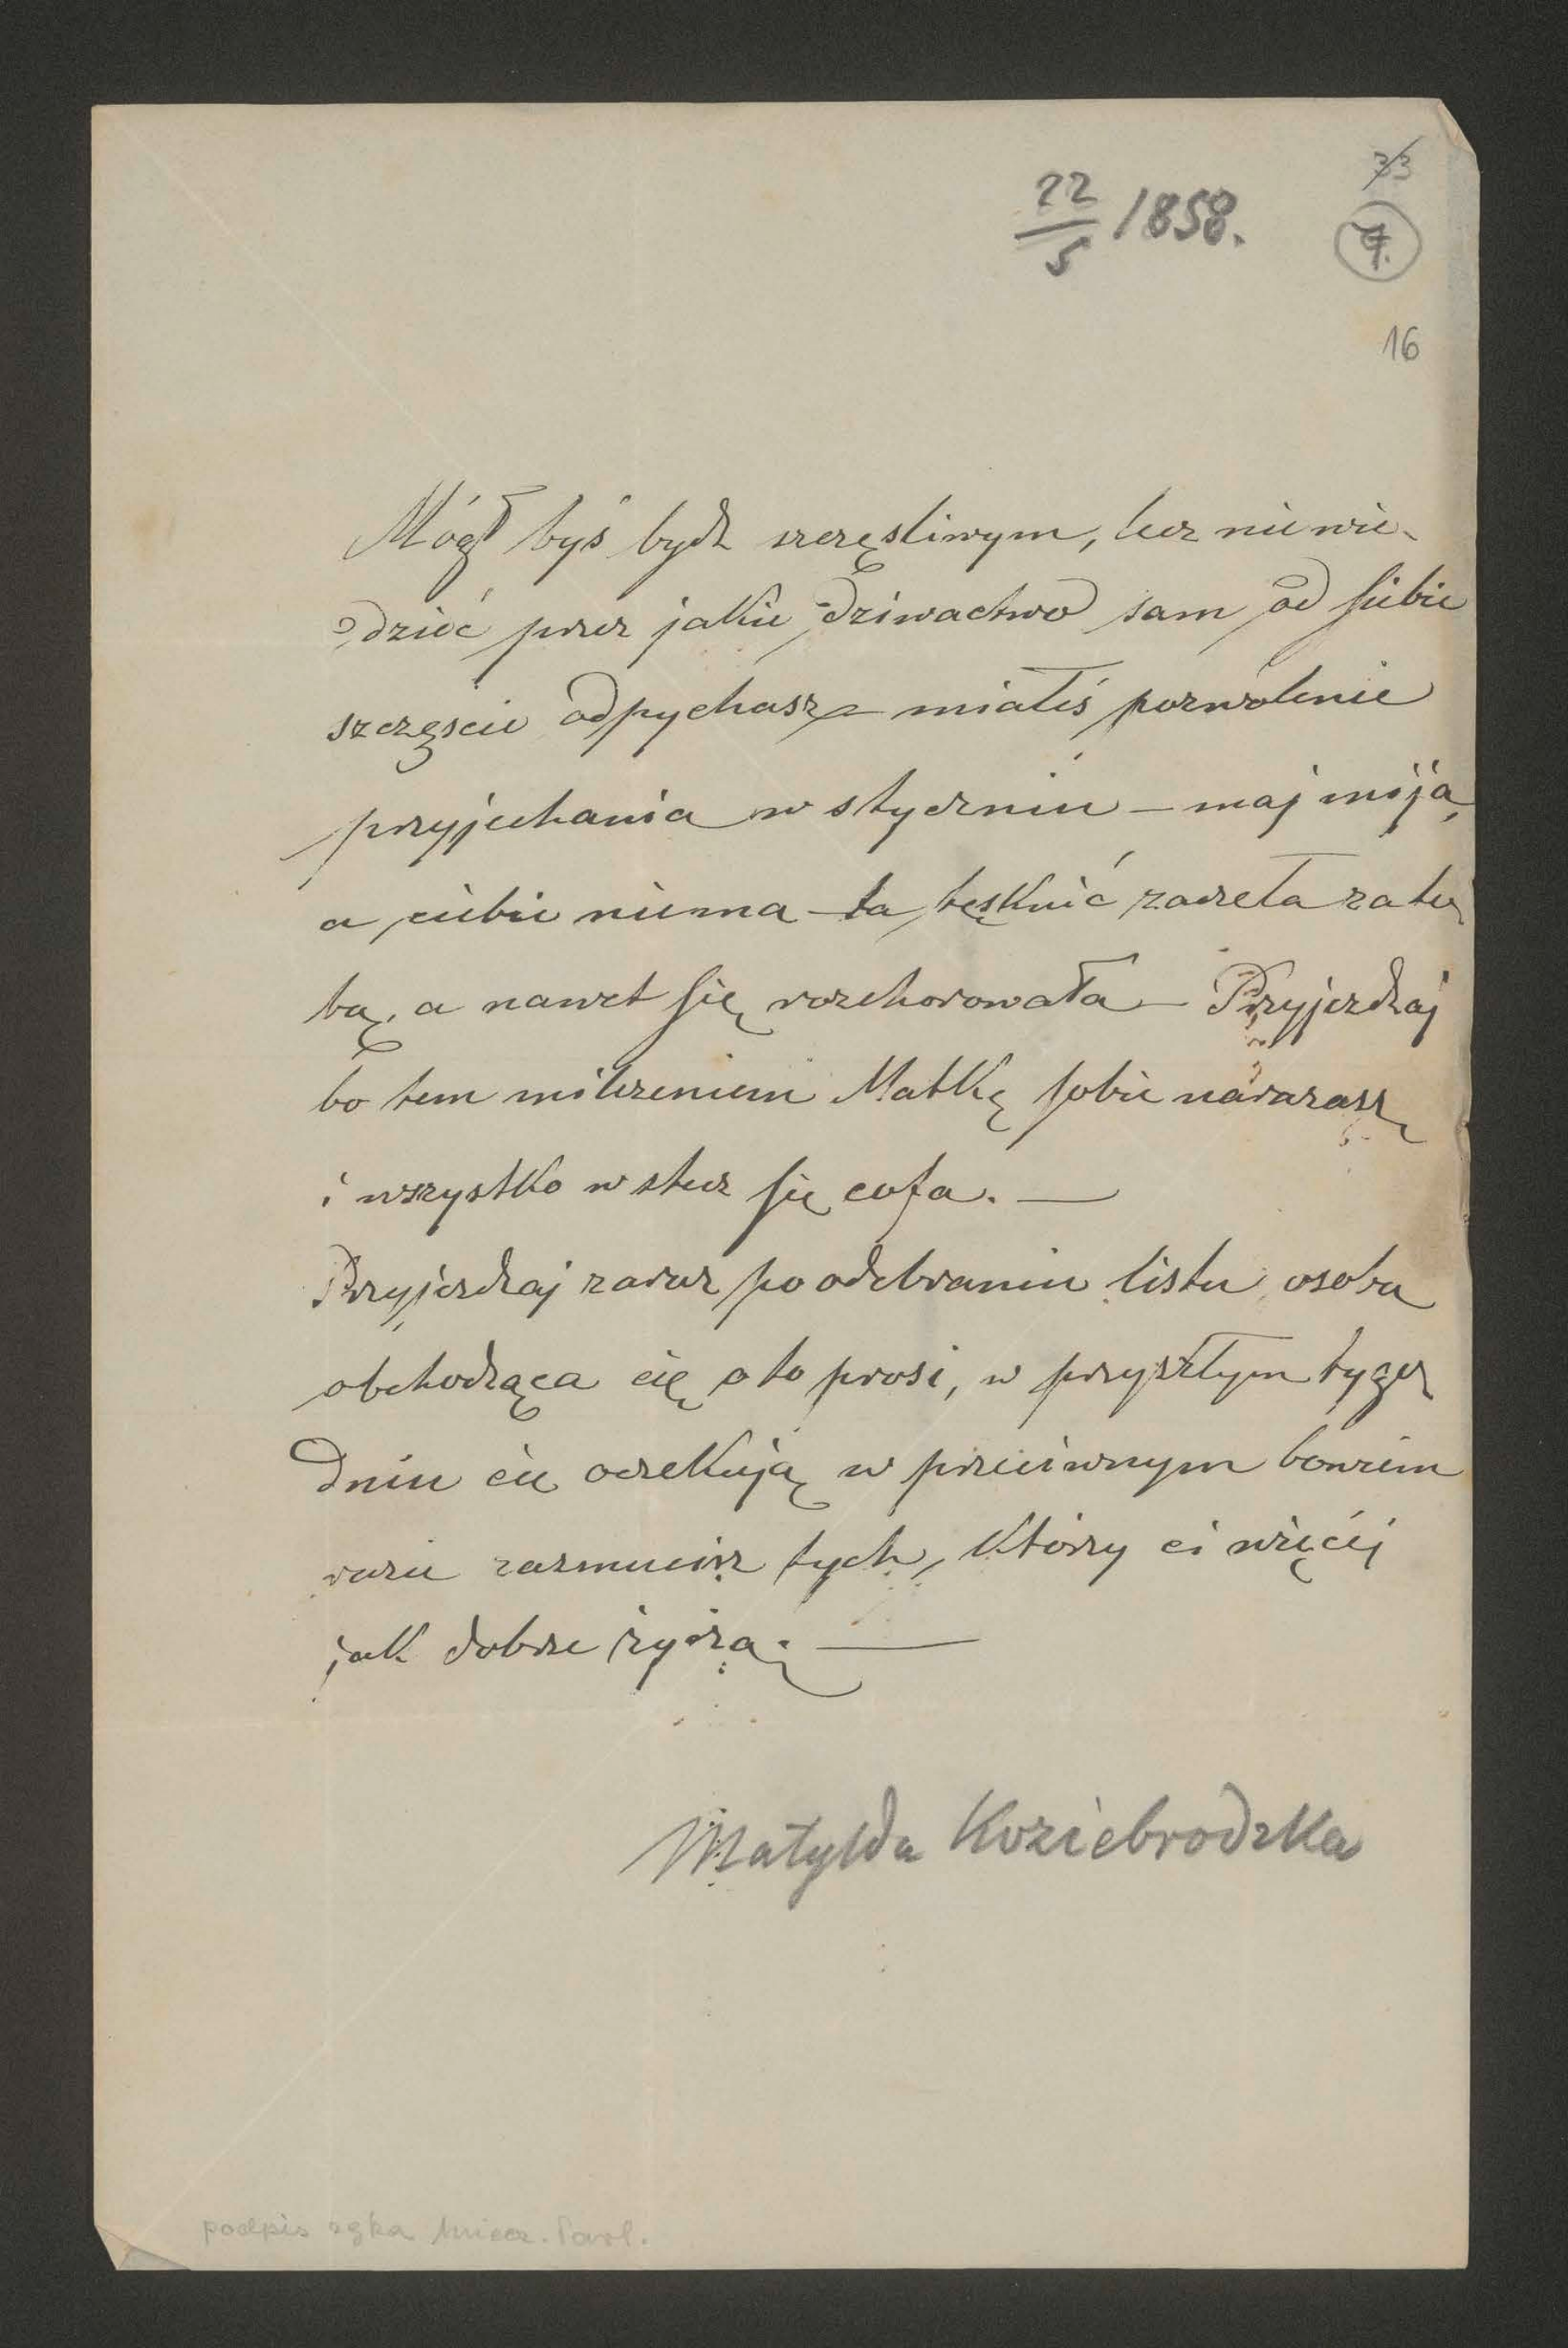 22/5 1858.
33
7.
16
Mógł byś bydź szczęsliwym, lecz nie wie-
dzieć przez jakie dziwactwo sam od siebie
szczęscie odpychasz – miałeś pozwolenie
przyjechania w styczniu – maj mija,
a ciebie niema – ta tęsknić zaczeła za to
bą, a nawet się rozchorowała – Przyjezdżaj
bo tem milczeniem Matkę sobie narazasz
i wszystko wstecz się cofa. —
Przyjezdżaj zaraz po odebraniu listu osoba
obchodząca cię o to prosi, w przyszłym tygo
dniu cię oczekują w przeciwnym bowiem
razie zasmucisz tych, którzy ci więcéj
jak dobrze życzą. —
Matylda Koziebrodzka
podpis ręką Miecz. Pawl.